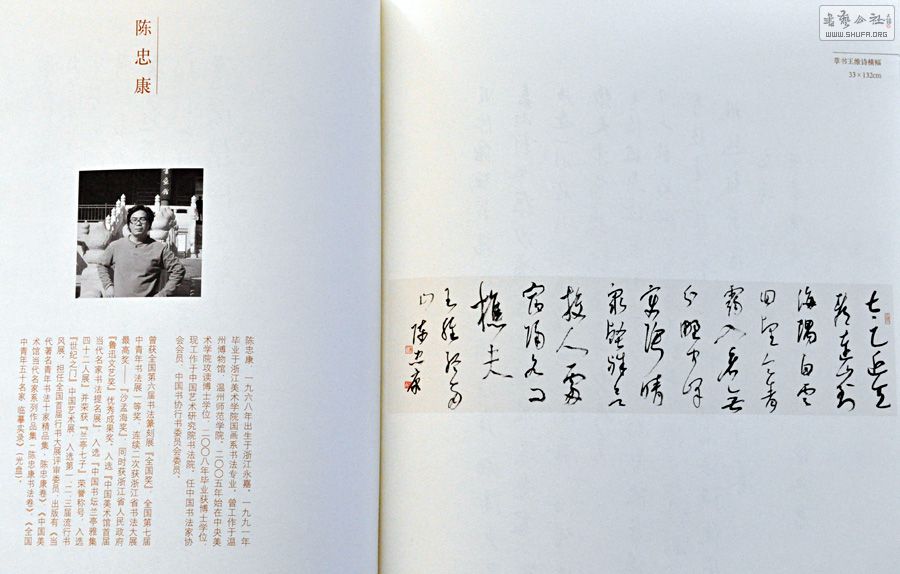 陈忠康
陈忠康,一九六八年出生于浙江永嘉,一九九一年
毕业于浙江美术学院国画系书法专业,曾工作于温
州博物馆、温州师范学院,二〇〇五年始在中央美
术学院攻读博士学位,二〇〇八年毕业获博士学位,
现工作于中国艺术研究院书法院,任中国书法家协
会会员、中国书协行书委员会委员。
曾获全国第六届书法篆刻展『全国奖』、全国第七届
中青年书法展一等奖,连续二次获浙江省书法大展
最高奖——『沙孟海奖』,同时获浙江省人民政府
『鲁迅文艺奖』优秀成果奖,入选『中国美术馆首届
当代名家书法提名展』,入选『中国书坛兰亭雅集
四十二人展』并荣获『兰亭七子』荣誉称号,入选
『世纪之门』中国艺术展,入选第一、二、三届流行书
风展,担任全国首届行书大展评审委员,出版有《当
代著名青年书法十家精品集·陈忠康卷》《中国美
术馆当代名家系列作品集·陈忠康书法卷》、《全国
中青年五十名家·临摹实录》(光盘)。
书艺公社
WWW.SHUFA.ORG
草书王维诗横幅
33×132cm
太乙近天
都连山到
海隅白云
回望合青
霭入看无
分野中峰
变阴晴
众壑殊欲
投人处
宿隔水问
樵夫
王维终南
山 陈忠康